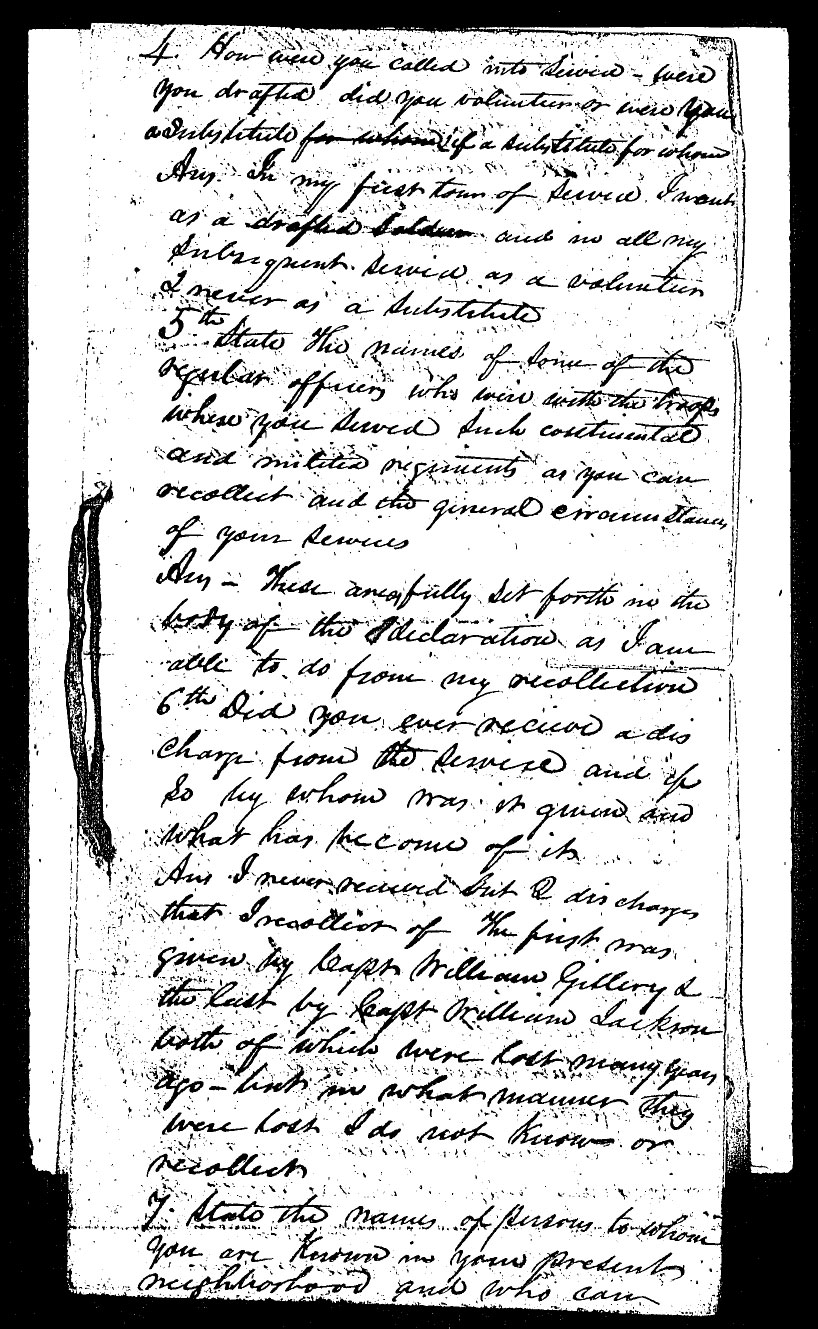 4. How were you called into Service – were
you drafted did you volunteer or were you
a Substitute for whom if a substitute for whom
Ans. In my first tour of Service I went
as a drafted Soldier and in all my
Subsequent Service as a volunteer
& never as a Substitute
5th State the names of some of the
regular officers who were with the troops
where you Served Such continental
and militia regiments as you can
recollect and the general circumstances
of your Services
Ans – These are fully Set forth in the
body of the declaration as I am
able to do from my recollection
6th Did you ever recieve a dis
charge from the Service and if
So by whom was it given and
what has become of it
Ans I never recieved but 2 discharges
that I recollect of The first was
given by Capt William Gillery &
the last by Capt William Jackson
both of which were lost many years
ago – but in what manner they
were lost I do not Know or
recollect
7. State the names of persons to whom
you are Known in your present
neighborhood and who can